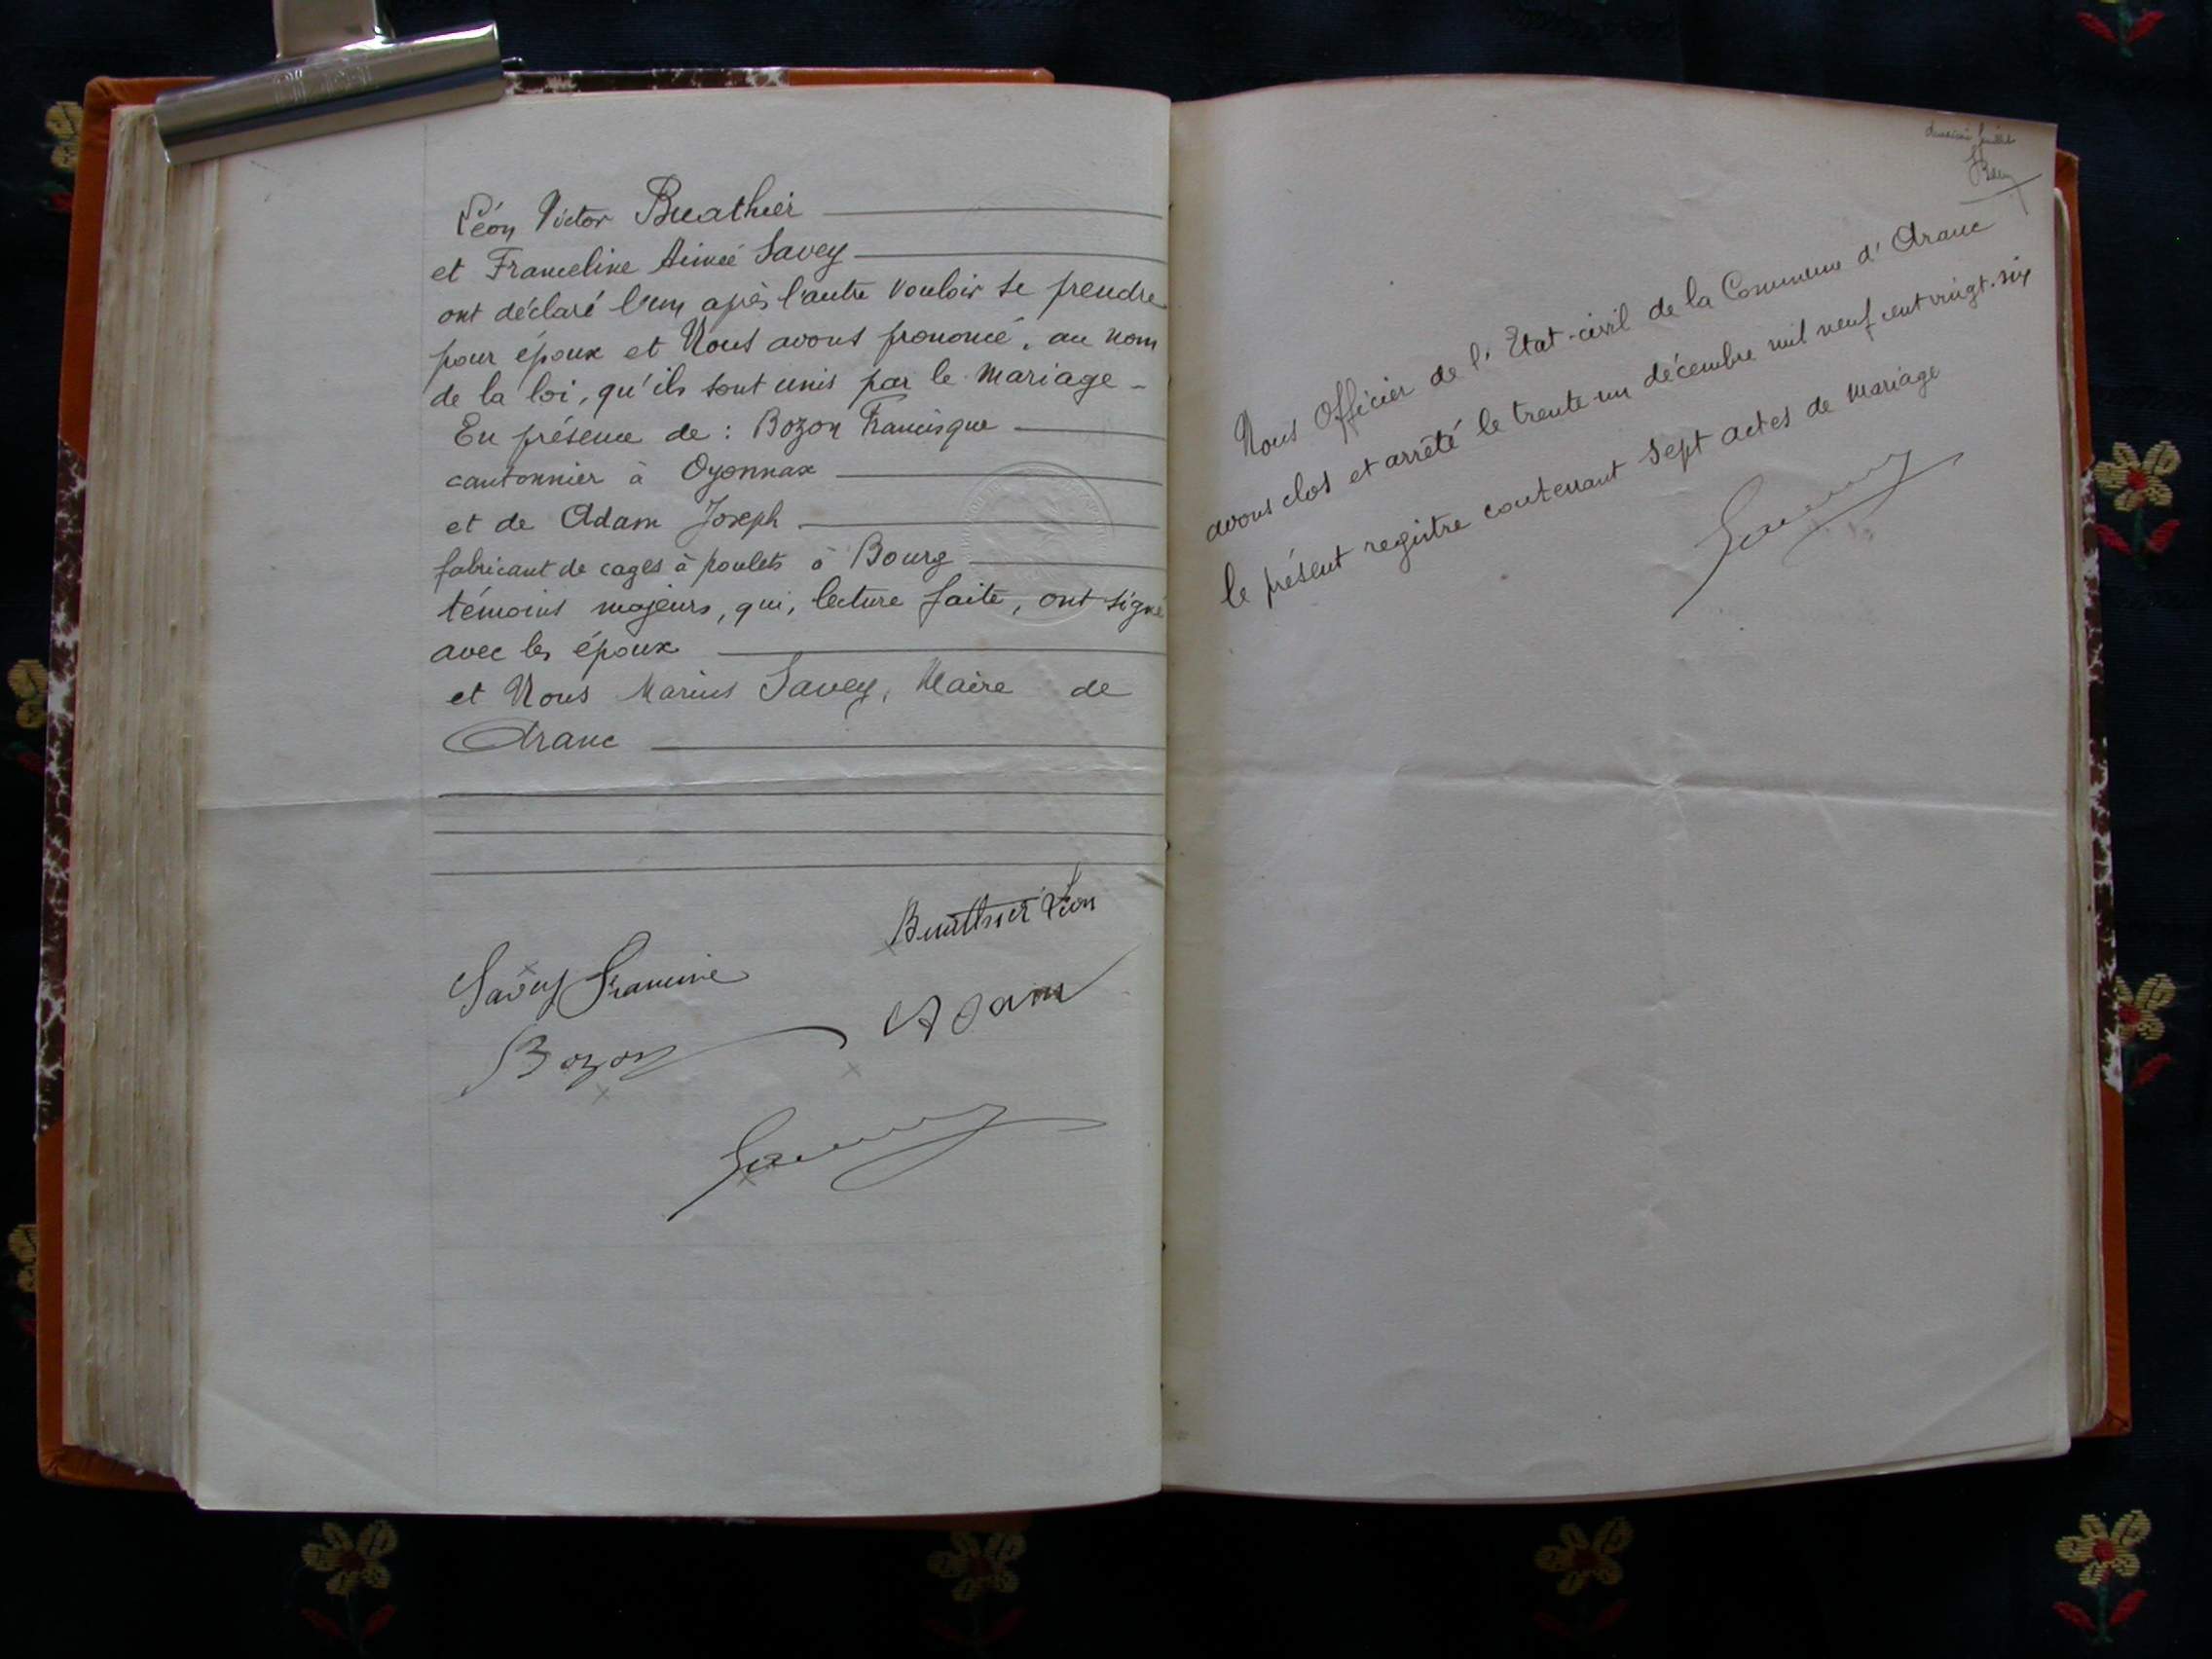 Léon Victor Buathier
et Franceline Aimée Savey
ont déclaré l'un après l'autre vouloir se prendre
pour époux et Nous avons prononcé, au nom
de la loi, qu'ils sont unis par le mariage -
En présence de : Bozon Francisque
cantonnier à Oyonnax
et de Adam Joseph
fabricant de cages à poulets à Bourg
témoins majeurs, qui, lecture faite, ont signé
avec les époux
et Nous Marius Savey, Maire de
Aranc
Buathier Léon
Savey Francine
Adam
Bozon
Savey
feuillet
Nous Officier de l'Etat-civil de la Commune d'Aranc
avons clos et arrêté le trente-un décembre mil neuf cent vingt-six
le présent registre contenant sept actes de mariage
Savey